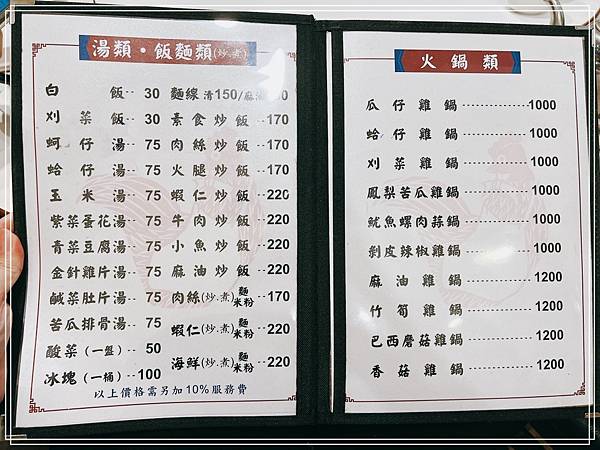 湯類・飯麵類(炒.煮)
白飯-- 30
刈菜飯-- 30
蚵仔湯-- 75
蛤仔湯-- 75
玉米湯-- 75
紫菜蛋花湯-- 75
青菜豆腐湯-- 75
金針雞片湯-- 75
鹹菜肚片湯-- 75
苦瓜排骨湯-- 75
酸菜(一盤)-- 50
冰塊(一桶)--100
麵線 清150/麻油
素食炒飯--170
肉絲炒飯--170
火腿炒飯--170
蝦仁炒飯--220
牛肉炒飯--220
小魚炒飯--220
麻油炒飯--220
肉絲(炒.煮)麵米粉--170
蝦仁(炒.煮)麵米粉--220
海鮮(炒.煮)麵米粉--220
以上價格需另加10%服務費
火鍋類
瓜仔雞鍋----------------1000
蛤仔雞鍋----------------1000
刈菜雞鍋----------------1000
鳳梨苦瓜雞鍋------------1000
魷魚螺肉蒜鍋------------1000
剝皮辣椒雞鍋------------1000
麻油雞鍋----------------1200
竹筍雞鍋----------------1200
巴西蘑菇雞鍋------------1200
香菇雞鍋----------------1200